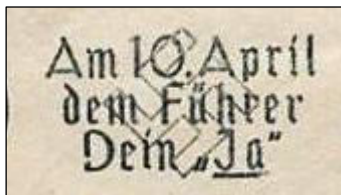 Am 10. April
dem Führer
Dein „Ja“